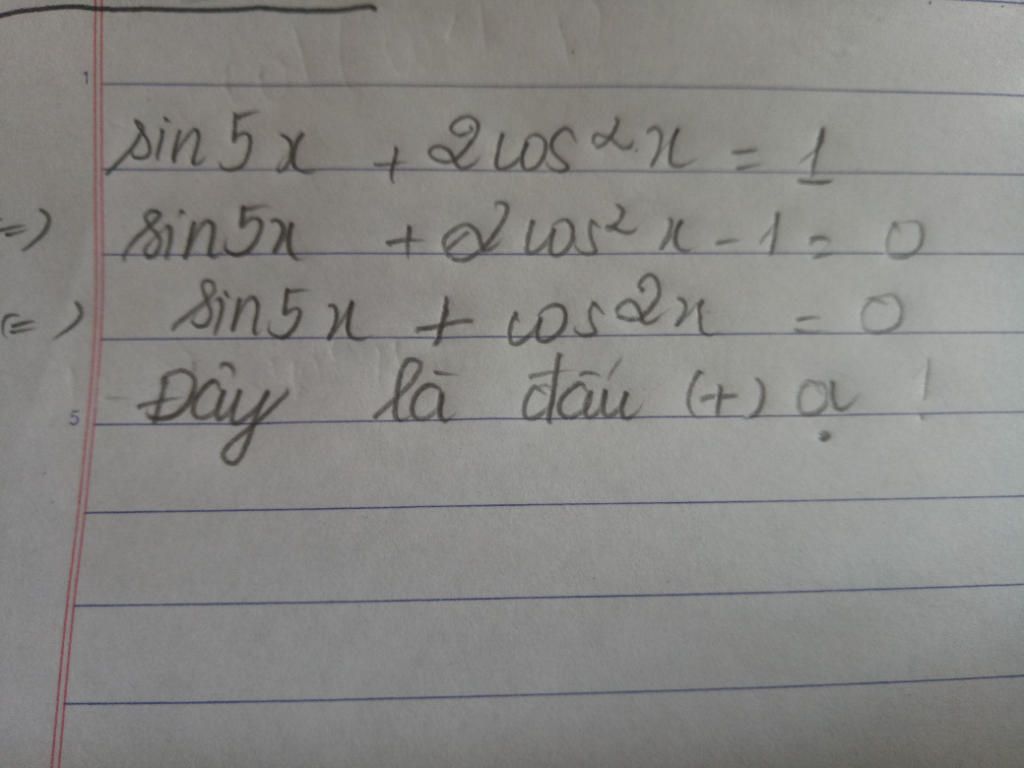 1
sin5x + 2cos²x = 1
=) sin5x + 2cos²x - 1 = 0
(=) sin5x + cos2x = 0
Đây là dấu (+) ạ !
5